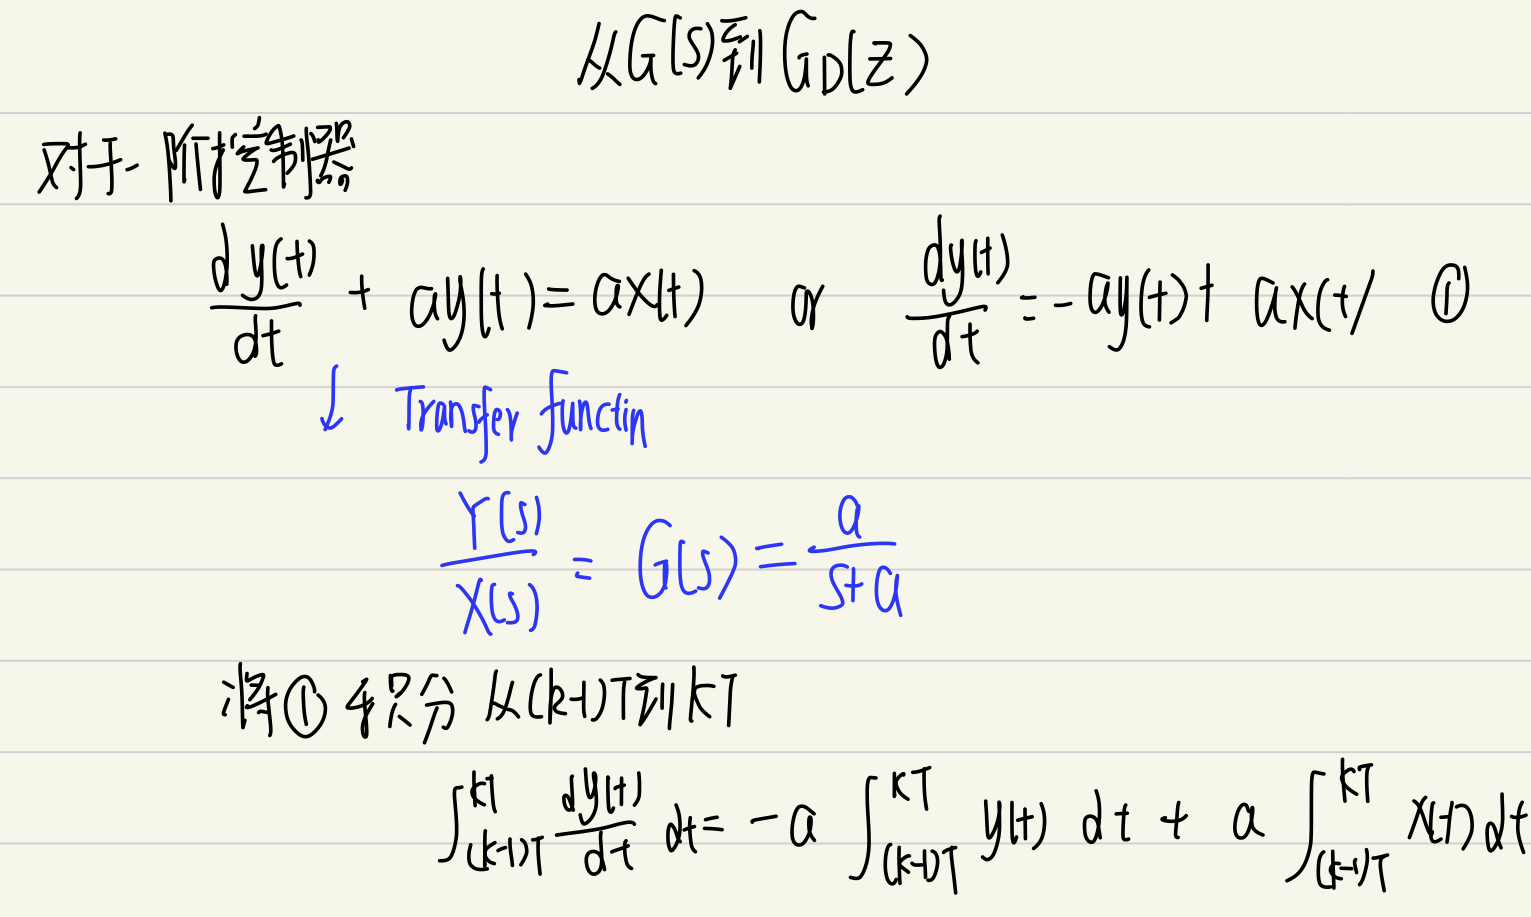 从G(S)到G_D(Z)
对于一阶控制器
dy(t)/dt + ay(t) = ax(t) or dy(t)/dt = -ay(t) + ax(t) ①
↓ Transfer functin
Y(s)/X(s) = G(s) = a/(s+a)
将①积分 从(k-1)T到kT
∫_{(k-1)T}^{kT} dy(t)/dt dt = -a ∫_{(k-1)T}^{kT} y(t) dt + a ∫_{(k-1)T}^{kT} x(t) dt